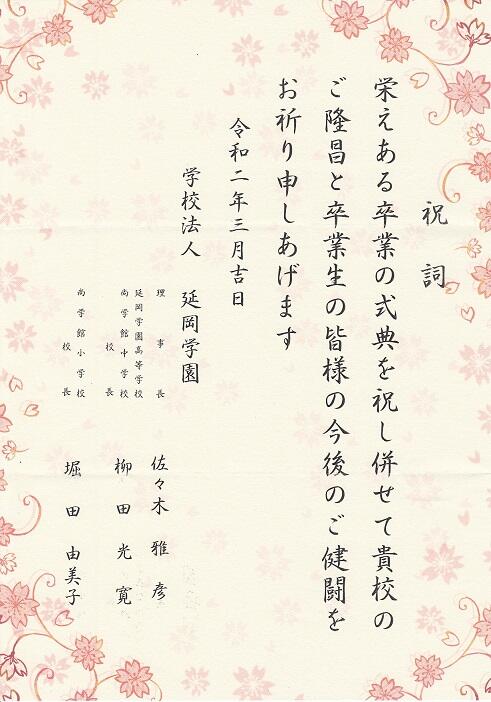 祝詞
栄えある卒業の式典を祝し併せて貴校の
ご隆昌と卒業生の皆様の今後のご健闘を
お祈り申しあげます
令和二年三月吉日
学校法人 延岡学園
理事長 佐々木雅彦
延岡学園高等学校
尚学館中学校
校長 柳田光寛
尚学館小学校
校長 堀田由美子